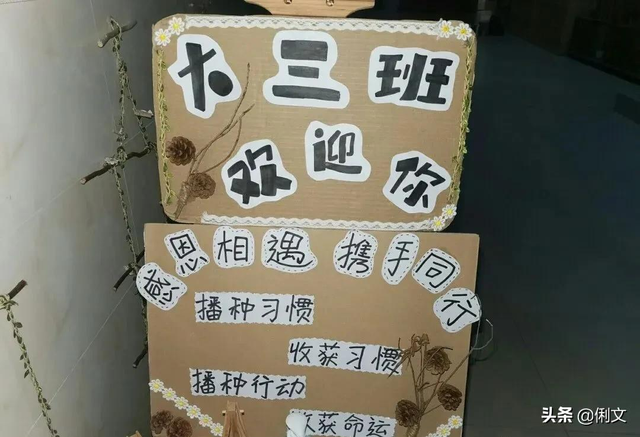 大三班
欢迎你
感恩相遇 携手同行
播种习惯
收获习惯
播种行动
收获命运
头条 @俐文